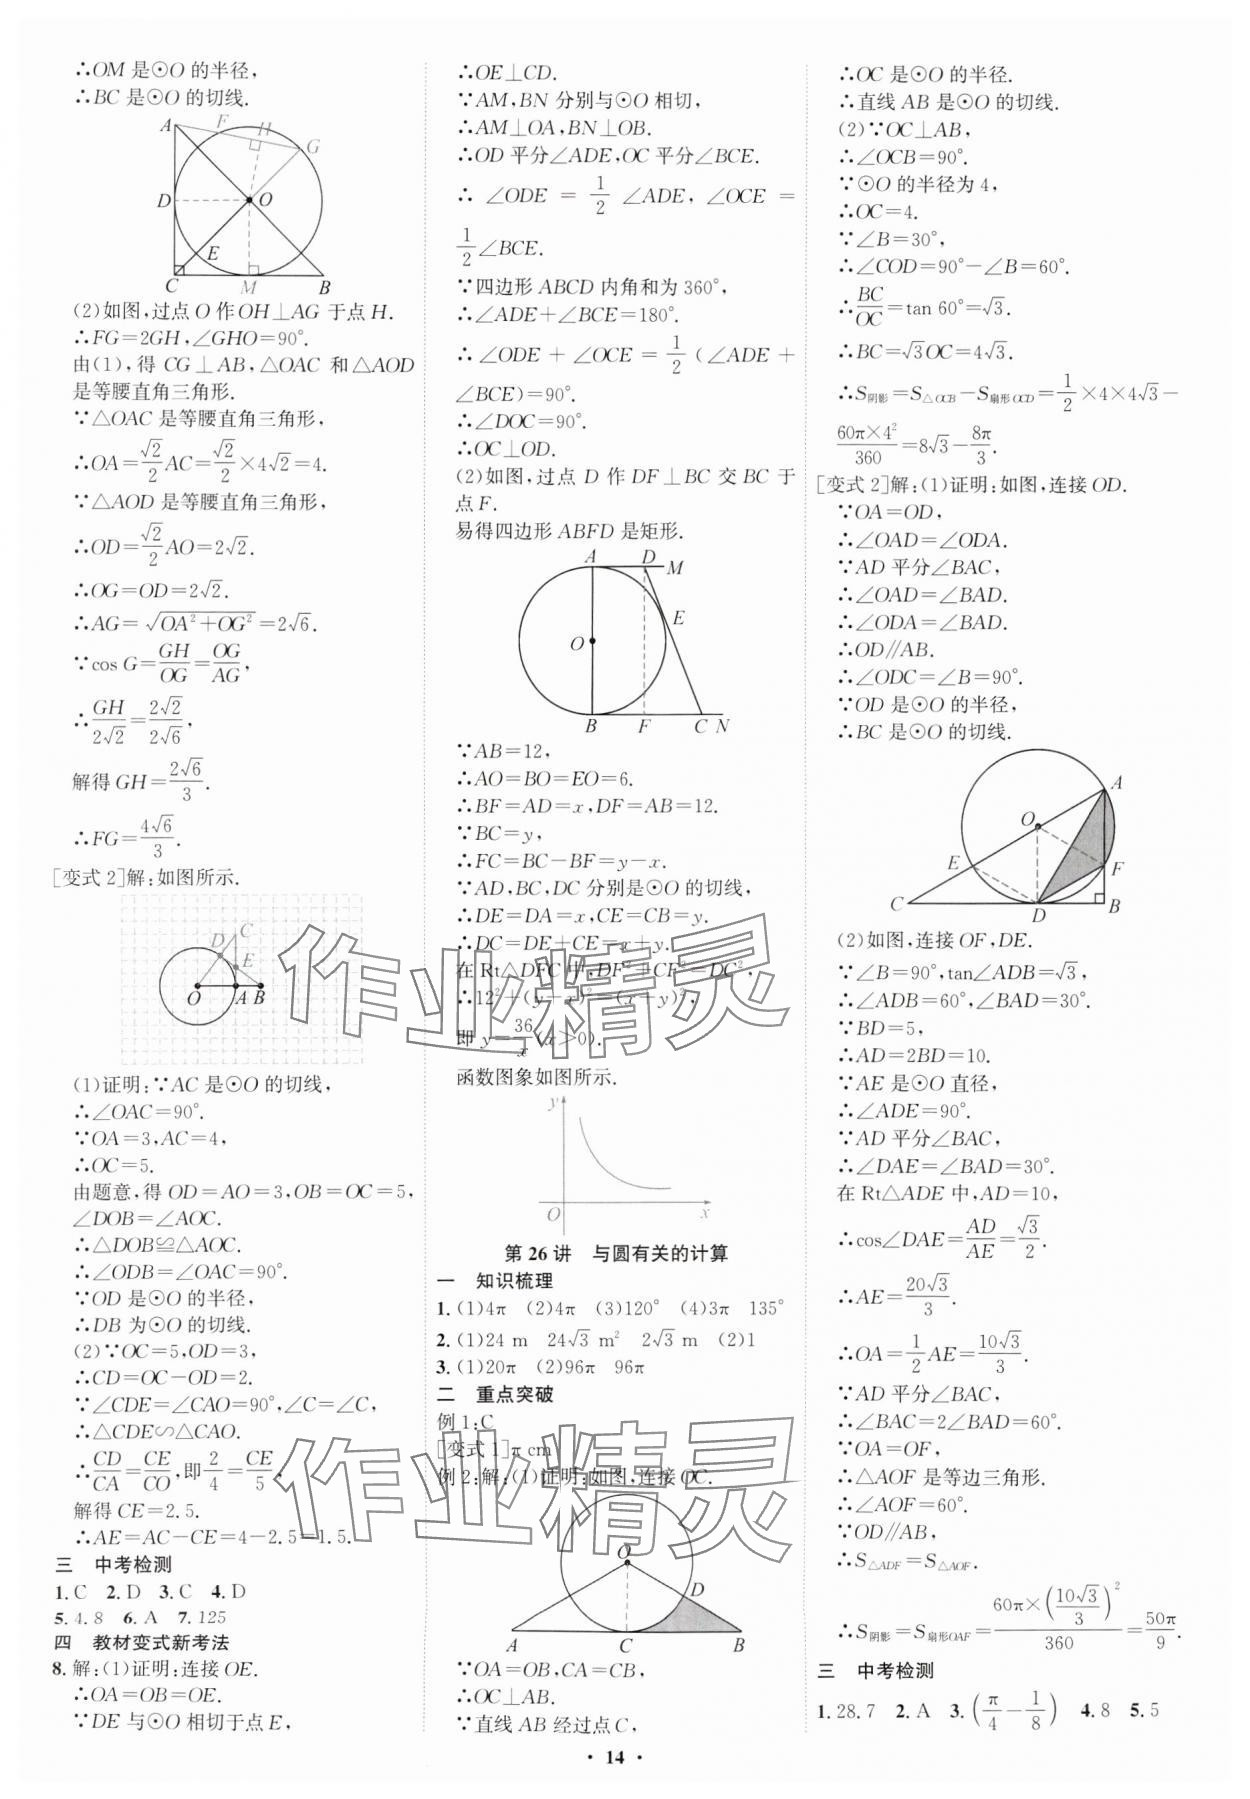 ∴OM 是⊙O 的半径,
∴BC 是⊙O 的切线.
A F H G
D O
E
C M B
(2)如图,过点 O 作OH⊥AG 于点 H.
∴FG=2GH,∠GHO=90°.
由(1),得 CG⊥AB,△OAC 和△AOD
是等腰直角三角形.
∵△OAC 是等腰直角三角形,
∴OA=√2/2 AC=√2/2×4√2=4.
∵△AOD 是等腰直角三角形,
∴OD=√2/2 AO=2√2.
∴OG=OD=2√2.
∴AG=√(OA²+OG²)=2√6.
∵cos G=GH/OG=OG/AG,
∴GH/2√2=2√2/2√6,
解得 GH=2√6/3.
∴FG=4√6/3.
[变式 2]解:如图所示.
D C
E
O A B
(1)证明:∵AC 是⊙O 的切线,
∴∠OAC=90°.
∵OA=3,AC=4,
∴OC=5.
由题意,得 OD=AO=3,OB=OC=5,
∠DOB=∠AOC.
∴△DOB≌△AOC.
∴∠ODB=∠OAC=90°.
∵OD 是⊙O 的半径,
∴DB 为⊙O 的切线.
(2)∵OC=5,OD=3,
∴CD=OC-OD=2.
∵∠CDE=∠CAO=90°,∠C=∠C,
∴△CDE∽△CAO.
∴CD/CA=CE/CO,即2/4=CE/5,
解得 CE=2.5.
∴AE=AC-CE=4-2.5=1.5.
三 中考检测
1.C 2.D 3.C 4.D
5.4.8 6.A 7.125
四 教材变式新考法
8.解:(1)证明:连接 OE.
∴OA=OB=OE.
∵DE 与⊙O 相切于点 E,
∴OE⊥CD.
∵AM,BN 分别与⊙O 相切,
∴AM⊥OA,BN⊥OB.
∴OD 平分∠ADE,OC 平分∠BCE.
∴ ∠ODE = 1/2 ∠ADE, ∠OCE =
1/2∠BCE.
∵四边形 ABCD 内角和为 360°,
∴∠ADE+∠BCE=180°.
∴ ∠ODE + ∠OCE = 1/2 (∠ADE +
∠BCE)=90°.
∴∠DOC=90°.
∴OC⊥OD.
(2)如图,过点 D 作 DF⊥BC 交 BC 于
点 F.
易得四边形 ABFD 是矩形.
A D M
E
O
B F C N
∵AB=12,
∴AO=BO=EO=6.
∴BF=AD=x,DF=AB=12.
∵BC=y,
∴FC=BC-BF=y-x.
∵AD,BC,DC 分别是⊙O 的切线,
∴DE=DA=x,CE=CB=y.
∴DC=DE+CE=x+y.
在 Rt△DFC 中,DF²+FC²=DC²,
∴12²+(y-x)²=(x+y)²,
即 y=36/x(x>0).
函数图象如图所示.
y
O x
第 26 讲 与圆有关的计算
一 知识梳理
1.(1)4π (2)4π (3)120° (4)3π 135°
2.(1)24 m 24√3 m² 2√3 m (2)1
3.(1)20π (2)96π 96π
二 重点突破
例 1:C
[变式 1]π cm
例 2:解:(1)证明:如图,连接 OC.
O
D
A C B
∵OA=OB,CA=CB,
∴OC⊥AB.
∵直线 AB 经过点 C,
∴OC 是⊙O 的半径.
∴直线 AB 是⊙O 的切线.
(2)∵OC⊥AB,
∴∠OCB=90°.
∵⊙O 的半径为 4,
∴OC=4.
∵∠B=30°,
∴∠COD=90°-∠B=60°.
∴BC/OC=tan 60°=√3.
∴BC=√3OC=4√3.
∴S阴影=S△OCB-S扇形OCD=1/2×4×4√3-
60π×4²/360=8√3-8π/3.
[变式 2]解:(1)证明:如图,连接 OD.
∵OA=OD,
∴∠OAD=∠ODA.
∵AD 平分∠BAC,
∴∠OAD=∠BAD.
∴∠ODA=∠BAD.
∴OD∥AB.
∴∠ODC=∠B=90°.
∵OD 是⊙O 的半径,
∴BC 是⊙O 的切线.
A
O
E F
C D B
(2)如图,连接 OF,DE.
∵∠B=90°,tan∠ADB=√3,
∴∠ADB=60°,∠BAD=30°.
∵BD=5,
∴AD=2BD=10.
∵AE 是⊙O 直径,
∴∠ADE=90°.
∵AD 平分∠BAC,
∴∠DAE=∠BAD=30°.
在 Rt△ADE 中,AD=10,
∴cos∠DAE=AD/AE=√3/2.
∴AE=20√3/3.
∴OA=1/2 AE=10√3/3.
∵AD 平分∠BAC,
∴∠BAC=2∠BAD=60°.
∵OA=OF,
∴△AOF 是等边三角形.
∴∠AOF=60°.
∵OD∥AB,
∴S△ADF=S△AOF.
∴S阴影=S扇形OAF=60π×(10√3/3)²/360=50π/9.
三 中考检测
1.28.7 2.A 3.(π/4-1/8) 4.8 5.5
• 14 •
作业精灵
作业精灵